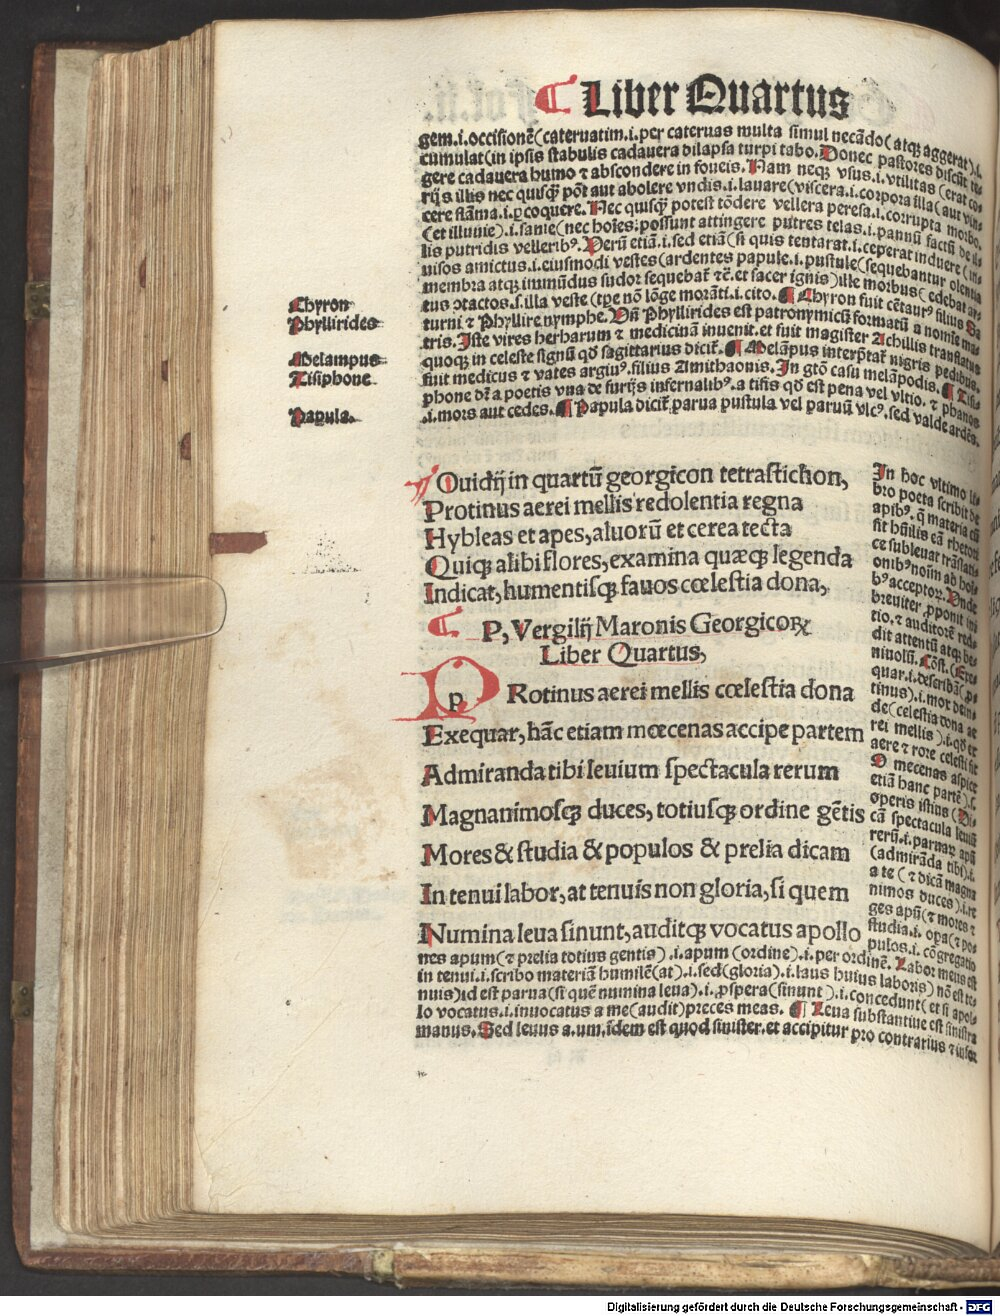 Liber Quartus
gem.i.occisionē(cateruatim.i.per cateruas multa simul necādo(atqꝫ aggerat).i.
cumulat(in ipsis stabulis cadauera dilapsa turpi tabo. Donec pastores discūt te-
gere cadauera humo ⁊ abscondere in foueis. Nam neqꝫ vsus.i.vtilitas (erat co-
rijs illis nec quisqꝫ pōt aut abolere vndis.i.lauare(viscera.i.corpora illa(aut vin-
cere flāma.i.ꝑcoquere. Nec quisqꝫ potest tōdere vellera peresa.i.corrupta morbo.
(et illuuie).i.sanie(nec hoīes possunt attingere putres telas.i.pannū factū de il-
lis putridis velleribꝰ. Verū etiā.i.sed etiā(si quis tentarat.i.ceperat induere (in-
uisos amictus.i.eiusmodi vestes(ardentes papule.i.pustule(sequebantur olentia
membra atqꝫ immūdus sudor sequebat̄ ⁊c̄.et sacer ignis)ille morbus(edebat ar-
tus ↄtactos.s.illa veste(tꝑe nō lōge morāti.i.cito. ¶ Chyron fuit cētaurꝰ filius Sa
turni ⁊ Phyllire nymphe. Vn̄ Phyllirides est patronymicū formatū a nomīe ma-
tris. Iste vires herbarum ⁊ medicinā inuenit. et fuit magister Achillis translatus
quoqꝫ in celeste signū qd̄ sagittarius dicit̄. ¶ Melāpus interp̄tat̄ nigris pedibus.
fuit medicus ⁊ vates argiuꝰ. filius Amithaonis. In gtō casu melāpodis. ¶ Tisi-
phone dr̄ a poetis vna de furijs infernalibꝰ. a tisis qd̄ est pena vel vltio. ⁊ phanos
.i.mors aut cedes. ¶ Papula dicit̄ parua pustula vel paruū vlcꝰ. sed valde ardēs.
Chyron
Phyllirides
Melampus
Tisiphone
Papula.
Ouidij in quartū georgicon tetrastichon,
Protinus aerei mellis redolentia regna
Hybleas et apes, aluorū et cerea tecta
Quiqꝫ alibi flores, examina quæqꝫ legenda
Indicat, humentisqꝫ fauos cœlestia dona,
P, Vergilij Maronis Georgicoꝝ
Liber Quartus,
p
PRotinus aerei mellis cœlestia dona
Exequar, hāc etiam mœcenas accipe partem
Admiranda tibi leuium spectacula rerum
Magnanimosqꝫ duces, totiusqꝫ ordine gētis
Mores & studia & populos & prelia dicam
In tenui labor, at tenuis non gloria, si quem
Numina leua sinunt, auditqꝫ vocatus apollo
In hoc vltimo li-
bro poeta scribit de
apibꝰ. q̄ materia cū
sit hūilis eā rhetori
ce subleuat trāslatis
onibꝰ noīm ab hoī-
bꝰ acceptoꝝ. Vnde
breuiter ꝓponit ini
tio. ⁊ auditorē red-
dit attentū atqꝫ be-
niuolū. Cōst. (Exe-
quar.i.describā(ꝓ-
tinus).i.mox dein-
de(celestia dona ae
rei mellis).i.qd̄ ex
aere ⁊ rore celesti fit
O mecenas aspice
etiā hanc partē).s.
operis istius (Di-
cā spectacula leuiū
rerū.i.paruaꝝ apū
(admirāda tibi).i.
a te (⁊ dicā magna
nimos duces).i.re
ges apū(⁊ mores ⁊
studia.i.oꝑa(⁊ po-
pulos.i.cōgregatio
nes apum(⁊ prelia totius gentis).i.apum (ordine).i.per ordinē. Labor meus est
in tenui.i.scribo materiā humilē(at).i.sed(gloria).i.laus huius laboris) nō est te-
nuis)id est parua(si quē numina leua).i.ꝓspera(sinunt).i.concedunt(et si apol-
lo vocatus.i.inuocatus a me(audit)preces meas. ¶ Leua substantiue est sinistra
manus. Sed leuus a.um.idem est quod sinister.et accipitur pro contrarius ⁊
Digitalisierung gefördert durch die Deutsche Forschungsgemeinschaft - DFG